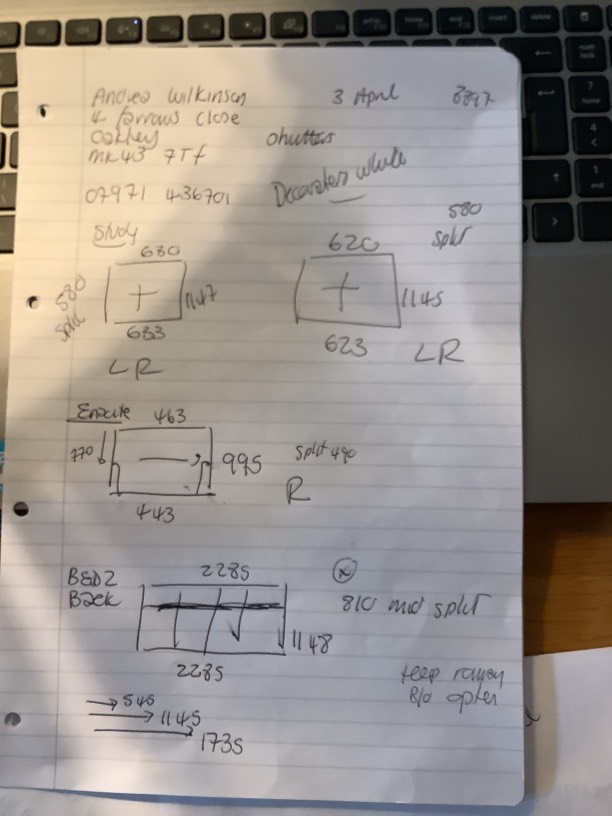 Andrea Wilkinson 3 April 8897
4 farrows close
Oakley shutters
MK43 7Tf
07971 436701 Decorators white
Study
630
580 split
1147
633
LR
620
580 split
1145
623
LR
Ensuite 463
770
995 split 490
R
443
BED2 2285
Back
810 mid split
1148
2285
545
1145
1735